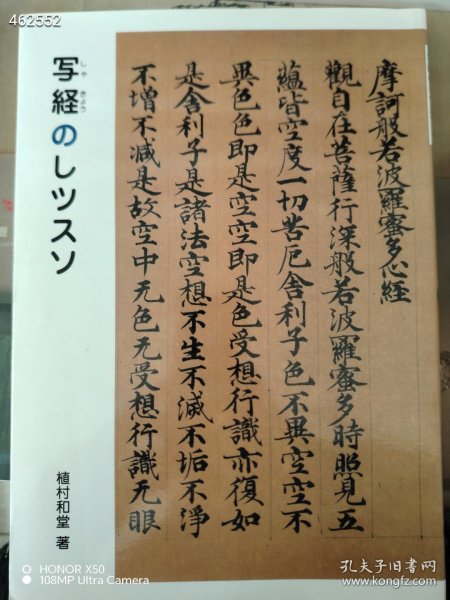 462552
写経のレッスン
しゃ きょう
植村和堂 著
摩訶般若波羅蜜多心経
觀自在菩薩行深般若波羅蜜多時照見五
蘊皆空度一切苦厄舎利子色不異空空不
異色色即是空空即是色受想行識亦復如
是舎利子是諸法空想不生不滅不垢不浄
不増不減是故空中无色无受想行識无眼
HONOR X50
108MP Ultra Camera
孔夫子旧书网
www.kongfz.com